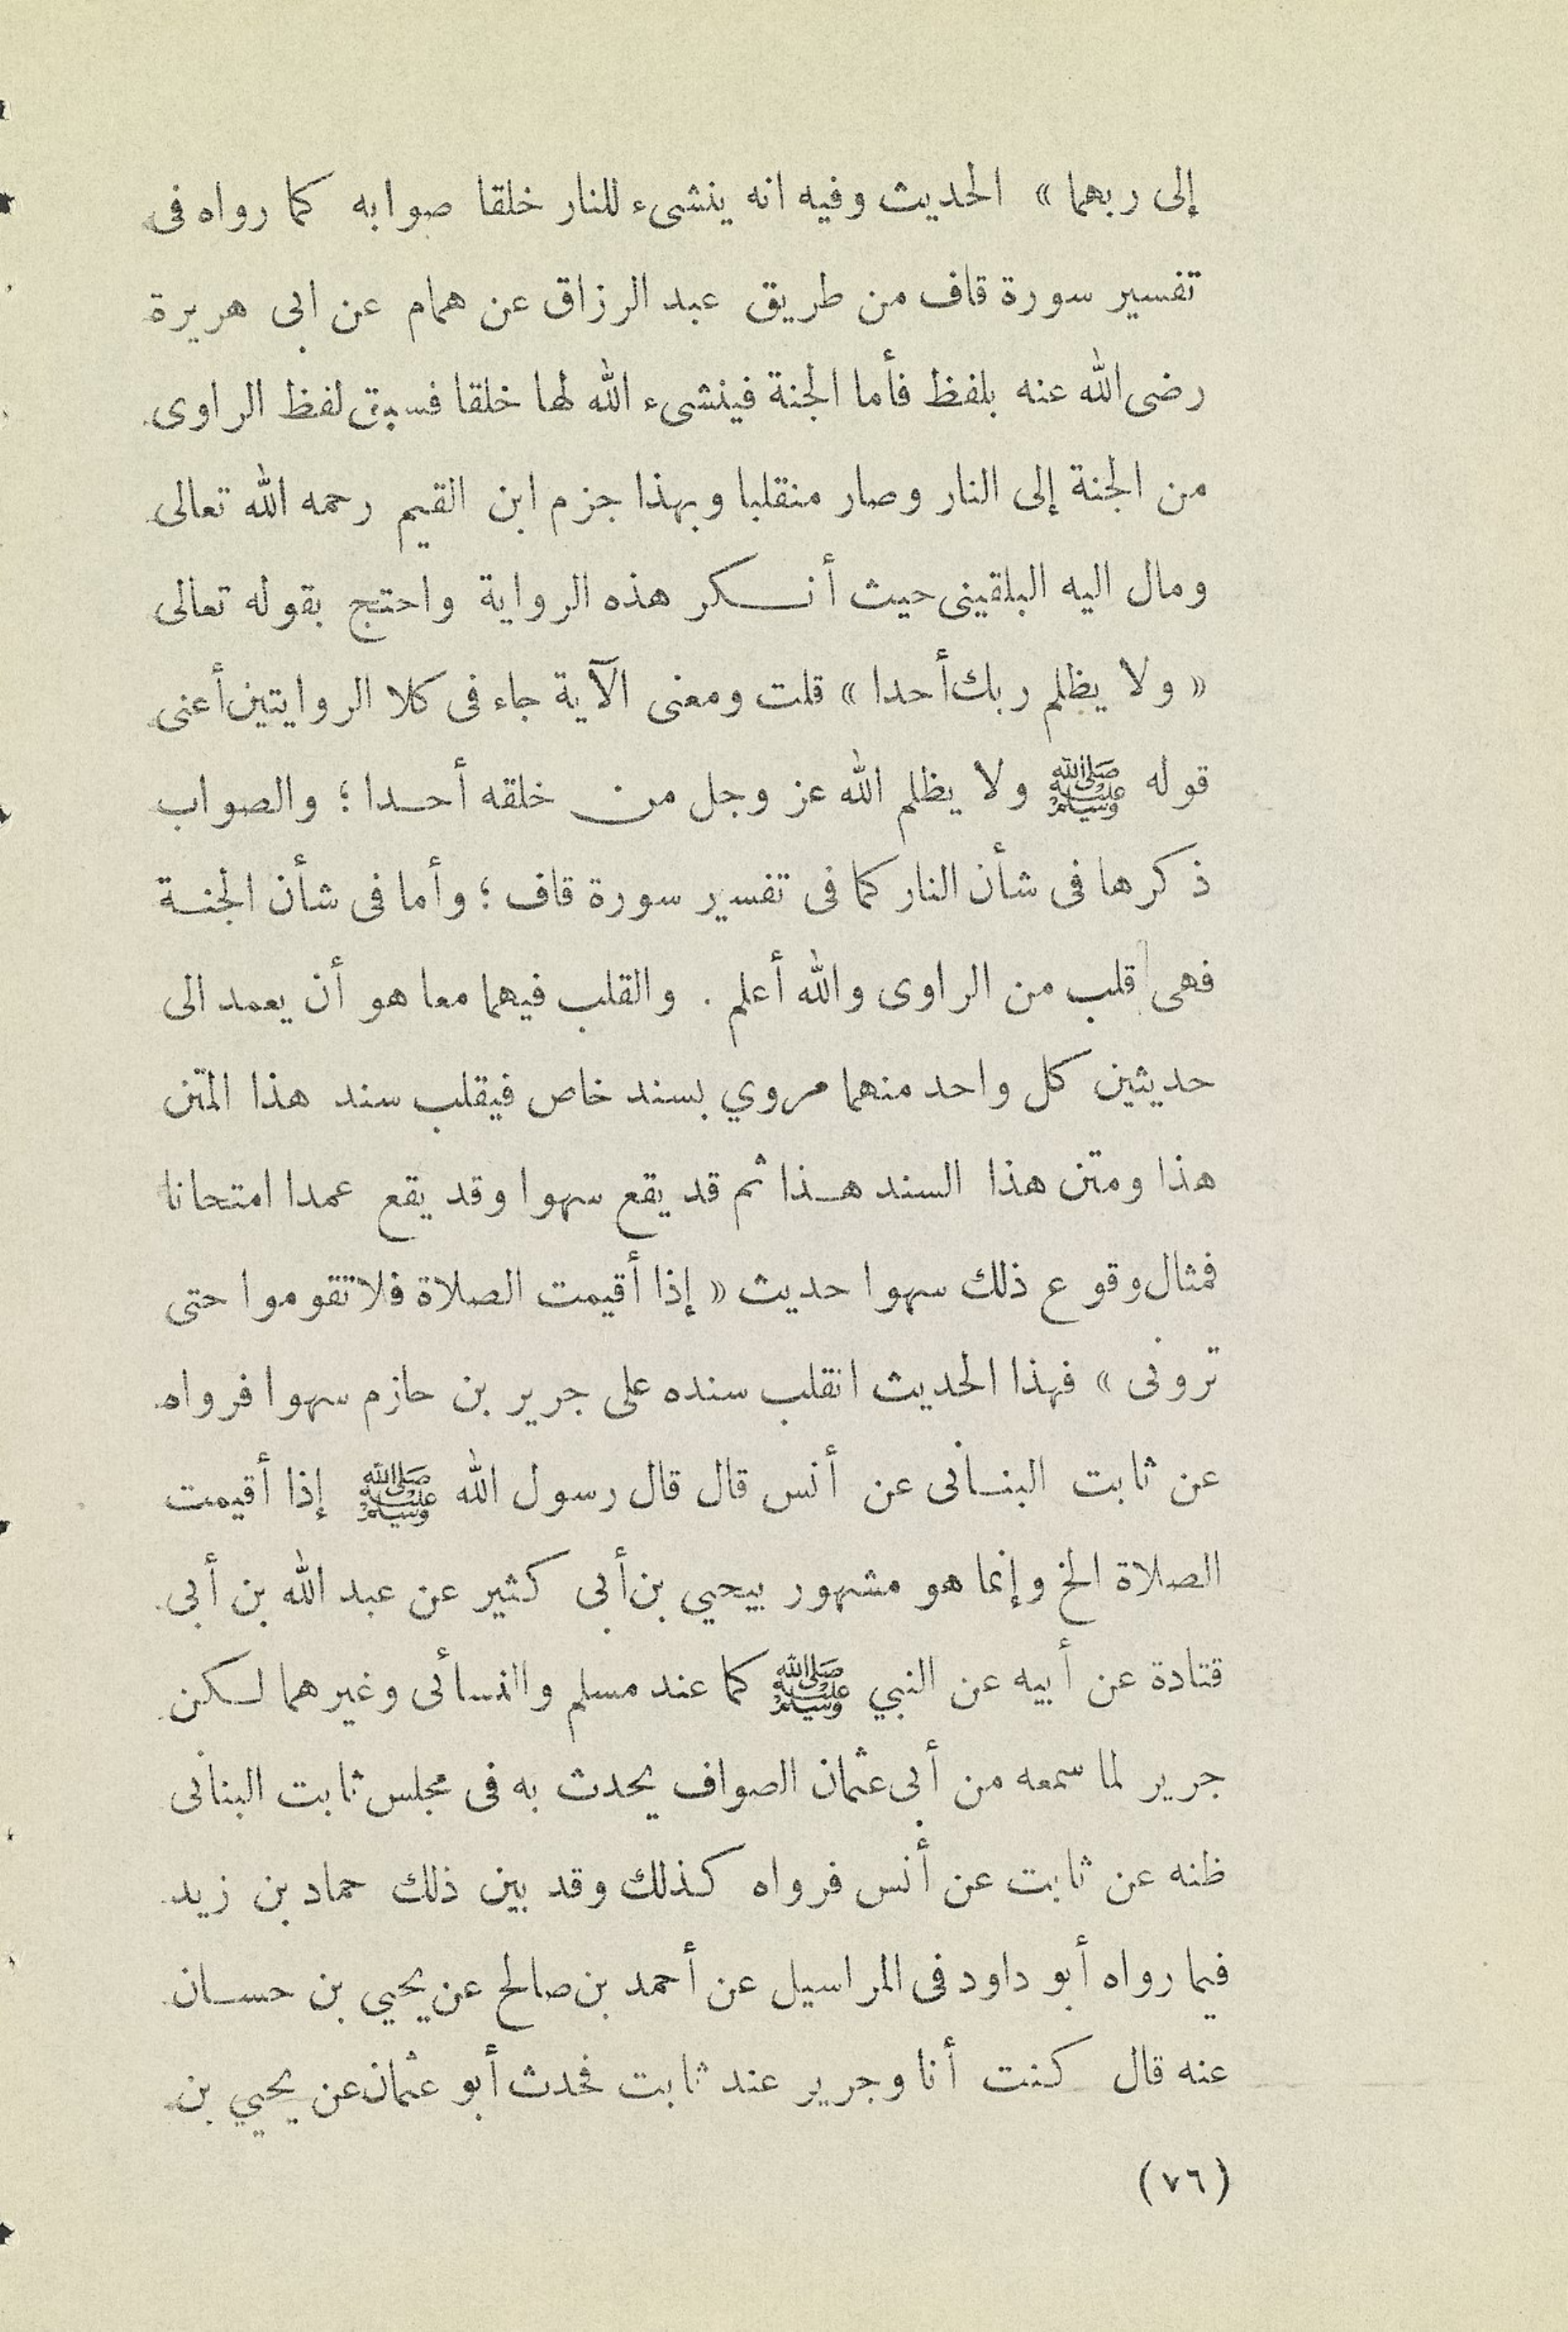 إلى ربهما » الحديث وفيه انه ينشىء للنار خلقا صوابه كما رواه فى
تفسير سورة قاف من طريق عبد الرزاق عن همام عن ابى هريرة
رضى الله عنه بلفظ فأما الجنة فينشىء الله لها خلقا فسبق لفظ الراوى
من الجنة إلى النار وصار منقلبا وبهذا جزم ابن القيم رحمه الله تعالى
ومال اليه البلقينى حيث أنكر هذه الرواية واحتج بقوله تعالى
« ولا يظلم ربك أحدا » قلت ومعنى الآية جاء فى كلا الروايتين أعنى
قوله ﷺ ولا يظلم الله عز وجل من خلقه أحدا ؛ والصواب
ذكرها فى شأن النار كما فى تفسير سورة قاف ؛ وأما فى شأن الجنة
فهى قلب من الراوى والله أعلم . والقلب فيهما معا هو أن يعمد الى
حديثين كل واحد منهما مروي بسند خاص فيقلب سند هذا المتن
هذا ومتن هذا السند هذا ثم قد يقع سهوا وقد يقع عمدا امتحانا
فمثال وقوع ذلك سهوا حديث « إذا أقيمت الصلاة فلا تقوموا حتى
ترونى » فهذا الحديث انقلب سنده على جرير بن حازم سهوا فرواه
عن ثابت البنانى عن أنس قال قال رسول الله ﷺ إذا أقيمت
الصلاة الخ وإنما هو مشهور بيحيي بن أبى كثير عن عبد الله بن أبى
قتادة عن أبيه عن النبي ﷺ كما عند مسلم والنسائى وغيرهما لكن
جرير لما سمعه من أبى عثمان الصواف يحدث به فى مجلس ثابت البنانى
ظنه عن ثابت عن أنس فرواه كذلك وقد بين ذلك حماد بن زيد
فيما رواه أبو داود فى المراسيل عن أحمد بن صالح عن يحيي بن حسان
عنه قال كنت أنا وجرير عند ثابت فحدث أبو عثمان عن يحيي بن
(٧٦)